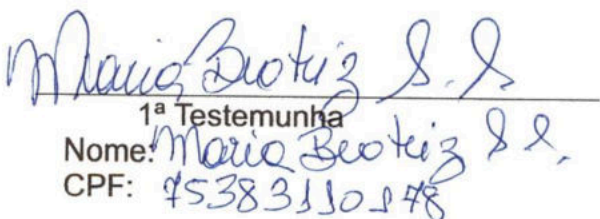 Maria Beatriz S. S.
1ª Testemunha
Nome: Maria Beatriz S S.
CPF: 75383110178